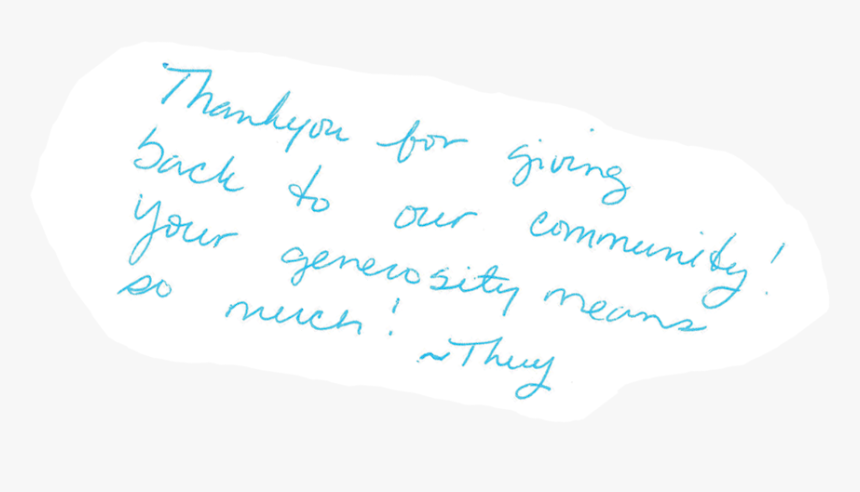 Thankyou for giving
back to our community!
Your generosity means
so much!
~Thuy